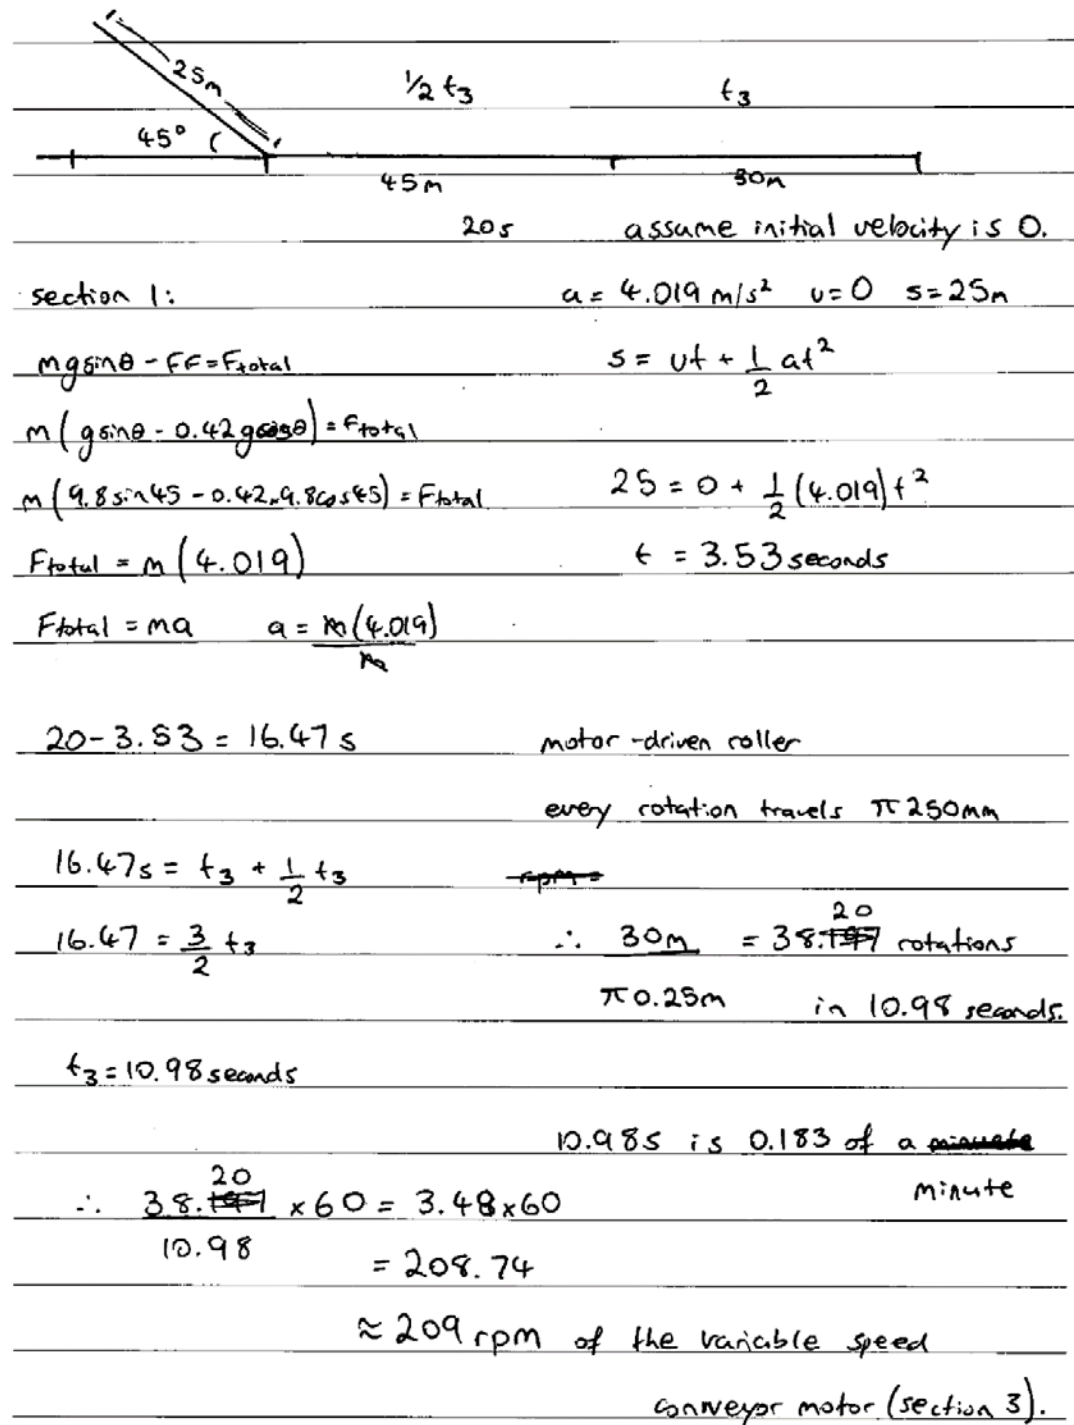 25m
½ t₃ t₃
45°
45m 30m
20s assume initial velocity is 0.
section 1: a = 4.019 m/s² u=0 s=25m
mgsinθ - FF = Ftotal s = ut + 1/2 at²
m(gsinθ - 0.42gcosθ) = Ftotal
m(9.8sin45 - 0.42×9.8cos45) = Ftotal 25 = 0 + 1/2 (4.019)t²
Ftotal = m(4.019) t = 3.53 seconds
Ftotal = ma a = m(4.019)/m
20-3.53 = 16.47s motor-driven roller
every rotation travels π250mm
16.47s = t₃ + 1/2 t₃ rpm =
16.47 = 3/2 t₃ ∴ 30m/π0.25m = 38.20 rotations
in 10.98 seconds.
t₃ = 10.98 seconds
10.98s is 0.183 of a minute
minute
∴ 38.20/10.98 × 60 = 3.48×60
= 208.74
≈ 209 rpm of the variable speed
conveyor motor (section 3).